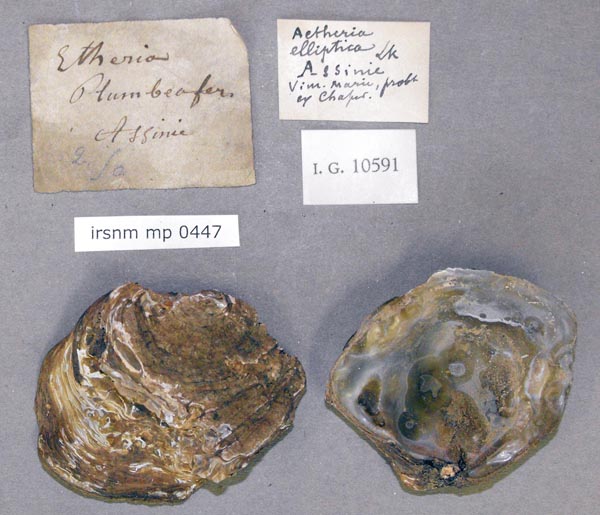 Etheria
Plumbea fer.
Assinie
Aetheria
elliptica Lk
Assinie
Vim. Marie, probt
ex Chaper.
I. G. 10591
irsnm mp 0447